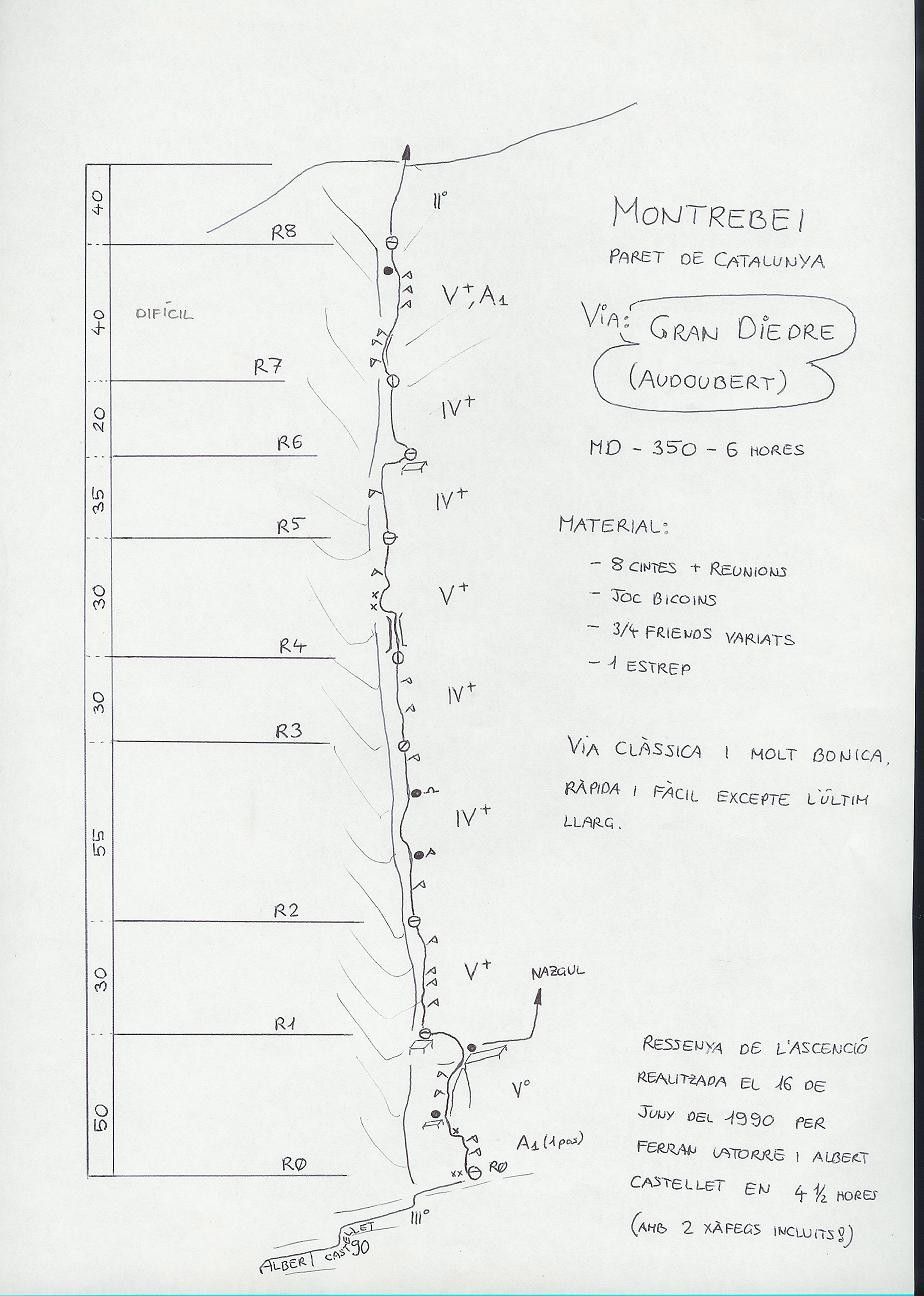 MONTREBEI
PARET DE CATALUNYA
VIA: GRAN DIEDRE
(AUDOUBERT)
MD - 350 - 6 HORES
MATERIAL:
- 8 CINTES + REUNIONS
- JOC BICOINS
- 3/4 FRIENDS VARIATS
- 1 ESTREP
VIA CLÀSSICA I MOLT BONICA,
RÀPIDA I FÀCIL EXCEPTE L'ÚLTIM
LLARG.
RESSENYA DE L'ASCENCIÓ
REALITZADA EL 16 DE
JUNY DEL 1990 PER
FERRAN LATORRE I ALBERT
CASTELLET EN 4 1/2 HORES
(AMB 2 XÀFEGS INCLUITS!)
40
II°
R8
40
DIFÍCIL
V+, A1
R7
20
IV+
R6
35
IV+
R5
30
V+
R4
30
IV+
R3
55
IV+
R2
30
V+
NAZGUL
R1
50
V°
A1 (1 pas)
RØ
RØ
III°
ALBERT CASTELLET 90